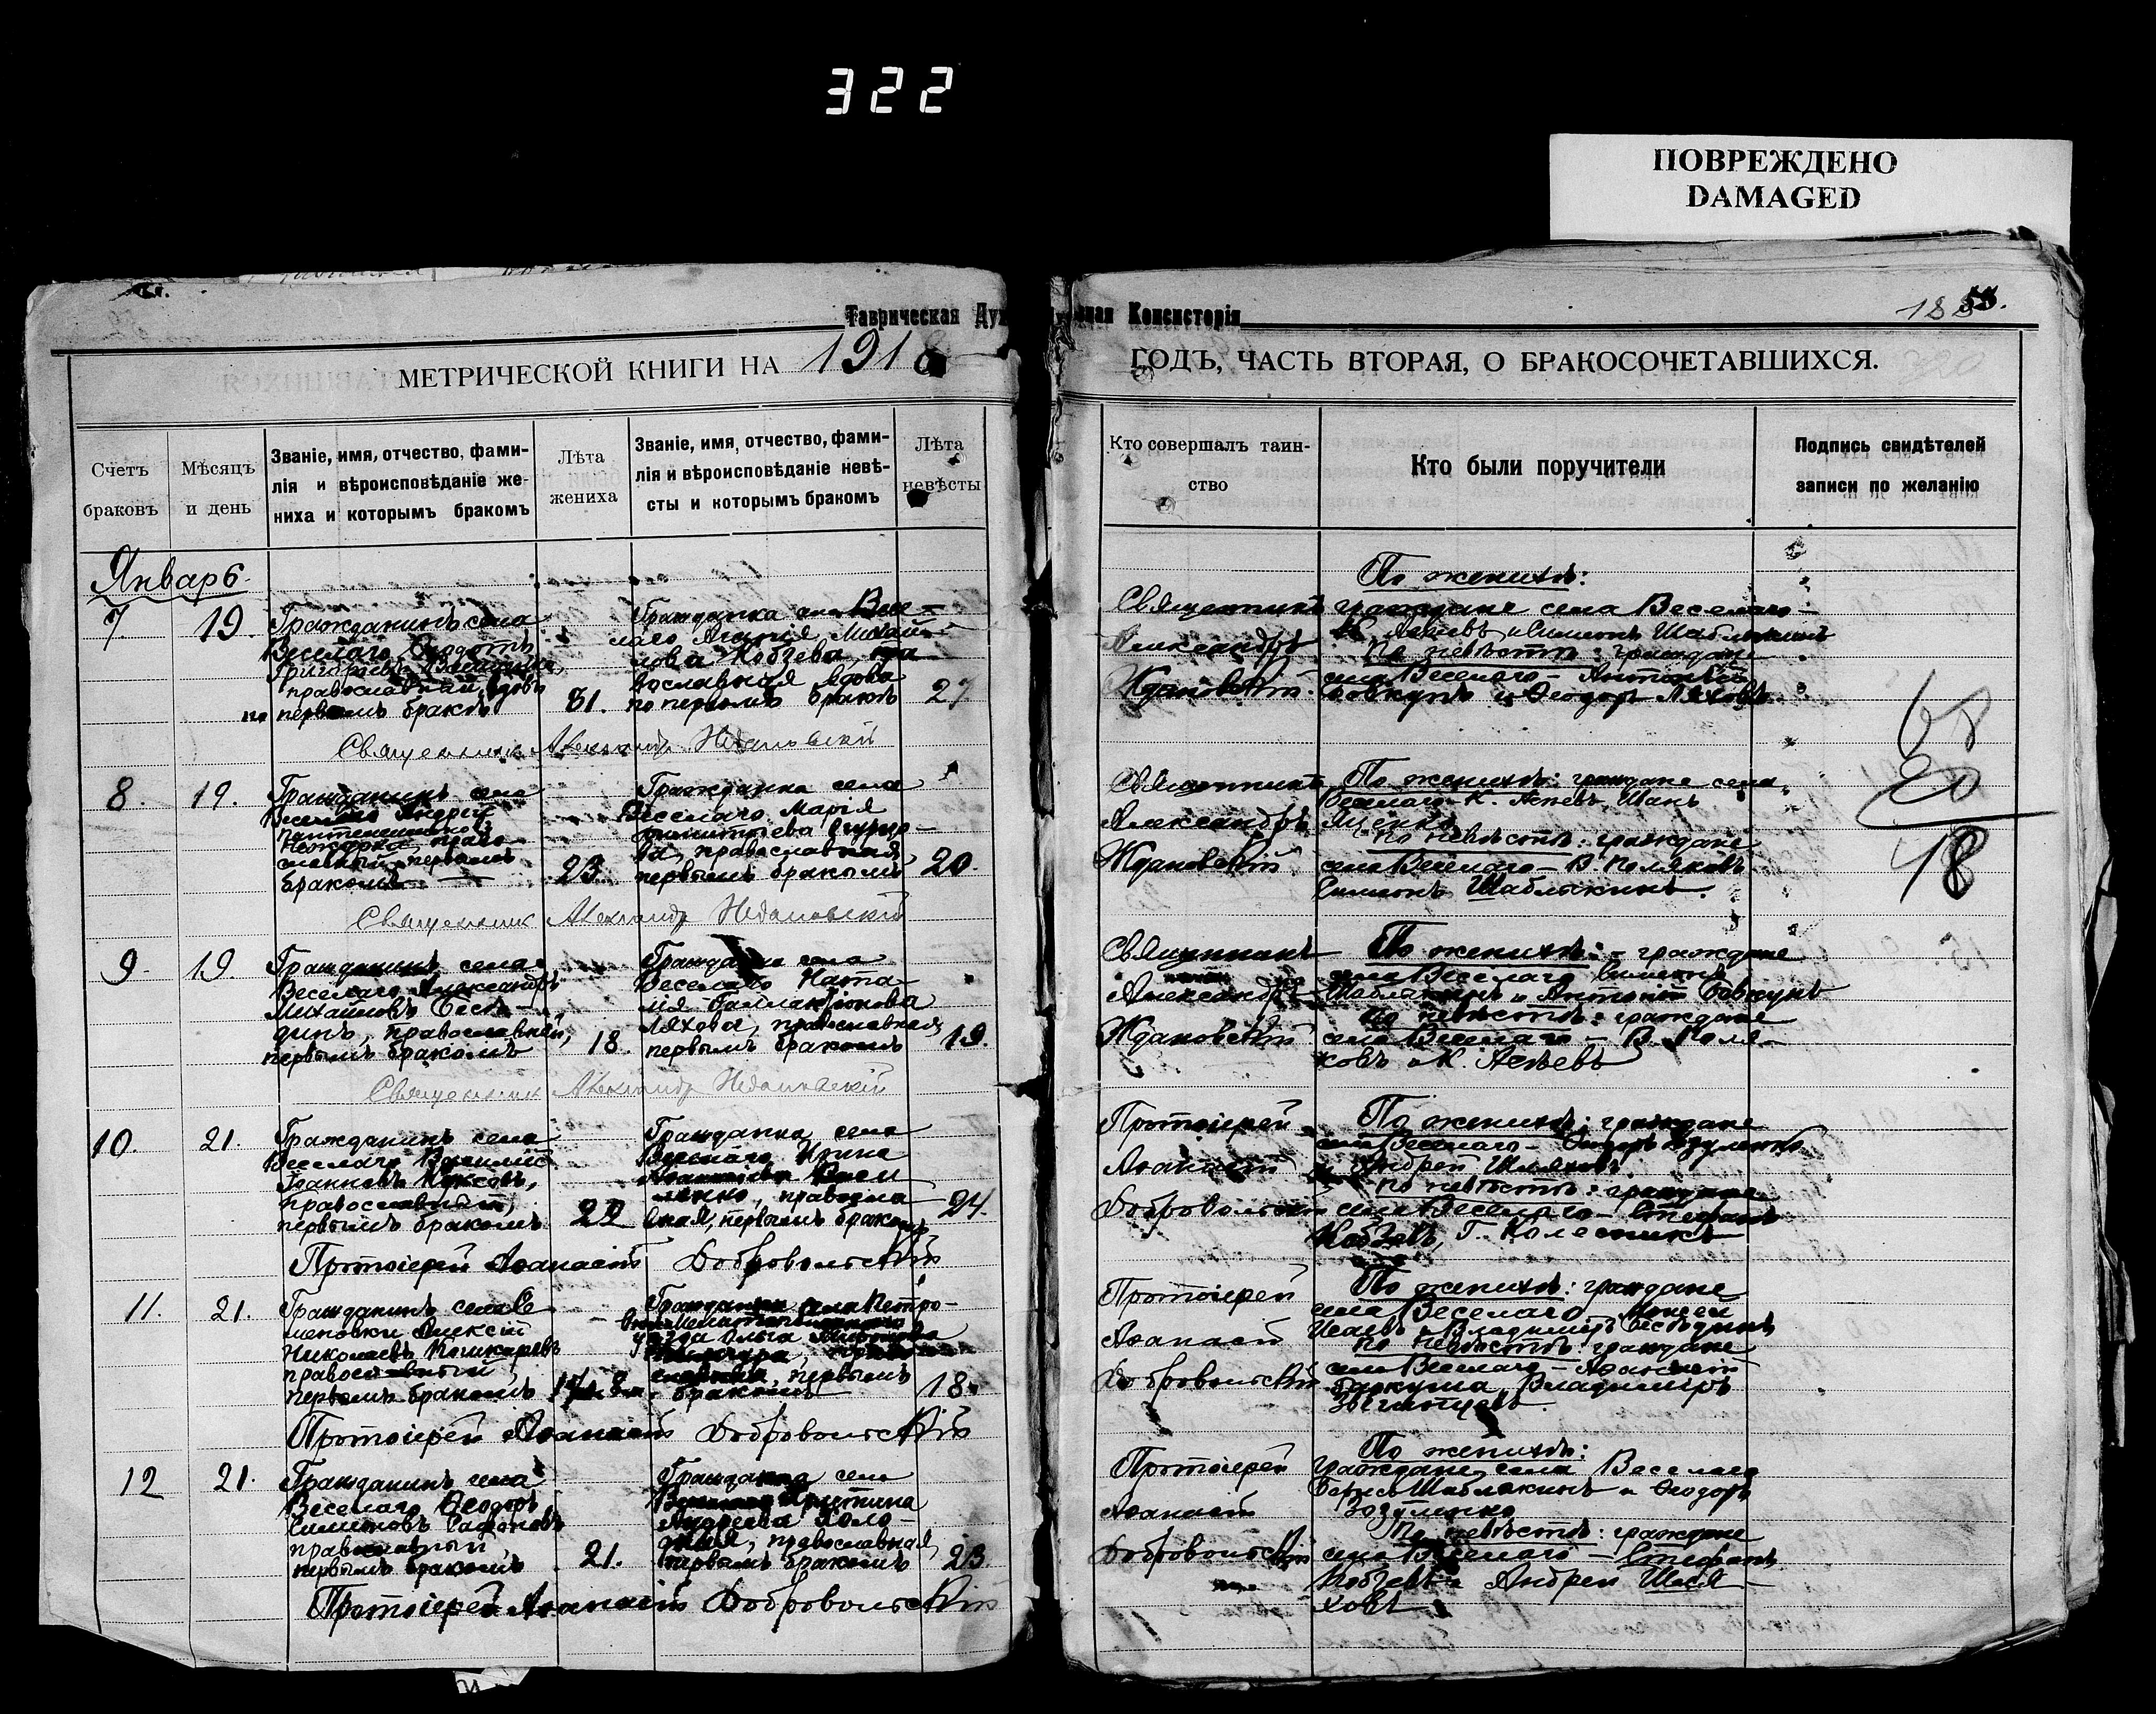 322
ПОВРЕЖДЕНО
DAMAGED
Таврическая Дух
вная Консисторія
МЕТРИЧЕСКОЙ КНИГИ НА 1918
ГОДЪ, ЧАСТЬ ВТОРАЯ, О БРАКОСОЧЕТАВШИХСЯ.
Счетъ
браковъ
Мѣсяцъ
и день
Званіе, имя, отчество, фами-
лія и вѣроисповѣданіе же-
ниха и которымъ бракомъ
Лѣта
жениха
Званіе, имя, отчество, фами-
лія и вѣроисповѣданіе невѣ-
сты и которымъ бракомъ
Лѣта
невѣсты
Кто совершалъ таин-
ство
Кто были поручители
Подпись свидѣтелей
записи по желанію
Январь
7.
19.
Гражданинъ села
Веселаго Ѳеодотъ
Григорьевъ
православный, вдовъ
по первомъ бракѣ
31.
Гражданка села Весе-
лаго Михай-
лова Кобзева, пра
вославная вдова
по первомъ бракѣ
27
Священникъ
Александръ
Ждановскій
По женихѣ:
граждане села Веселаго -
К. Асѣевъ и Симеонъ Шаблыкинъ
по невѣстѣ: граждане
села Веселаго - Антоній
Бовкунъ и Ѳеодоръ Ляховъ
Священник Александр Ждановскій
8.
19.
Гражданинъ села
Веселаго Андрей
Пантелеимоновъ
право-
славный первымъ
бракомъ
23.
Гражданка села
Веселаго Марія
Димитріева Огурцо-
ва, православная
первымъ бракомъ
20.
Священникъ
Александръ
Ждановскій
По женихѣ: граждане села
Веселаго К. Асѣевъ,
Яценко
по невѣстѣ: граждане
села Веселаго - В. Поляковъ
Симеонъ Шаблыкинъ.
68
20
48
Священник Александр Ждановскій
9.
19.
Гражданинъ села
Веселаго Александръ
Михаиловъ Бесѣ-
динъ, православный,
первымъ бракомъ
18.
Гражданка села
Веселаго Ната-
лія Галлактіонова
Ляхова, православная
первымъ бракомъ
19.
Священникъ
Александръ
Ждановскій
По женихѣ: - граждане
села Веселаго Симеонъ
Шаблыкинъ и Антоній Бовкунъ
по невѣстѣ: граждане
села Веселаго - В. Поля-
ковъ и К. Асѣевъ
Священник Александр Ждановскій
10.
21.
Гражданинъ села
Веселаго Василій
Іоанновъ
православный,
первымъ бракомъ
22
Гражданка села
Веселаго Ирина
православ
ная, первымъ бракомъ
24.
Протоіерей
Аѳанасій
Добровольскій
По женихѣ: граждане
села Веселаго - Ѳеодоръ Зозуленко
Андрей Шляховъ
по невѣстѣ: граждане
села Веселаго - Стефанъ
Кобзевъ, Г. Колесникъ
Протоіерей Аѳанасій Добровольскій
11.
21.
Гражданинъ села Се
меновки Алексій
Николаевъ
православный,
первымъ бракомъ
Гражданка села Петро-
уѣзда Ольга
первымъ
бракомъ
18.
Протоіерей
Аѳанасій
Добровольскій
По женихѣ: граждане
села Веселаго - Моисей
Исаевъ и Владиміръ Бесѣдинъ
по невѣстѣ: граждане
села Веселаго - Аѳанасій
Владиміръ
Звягинцевъ.
Протоіерей Аѳанасій Добровольскій
12
21.
Гражданинъ села
Веселаго Ѳеодоръ
Симеоновъ Сафоновъ
православный,
первымъ бракомъ
21.
Гражданка села
Веселаго Христина
Андреева Холо-
дная, православная,
первымъ бракомъ
23
Протоіерей
Аѳанасій
Добровольскій
По женихѣ:
граждане села Веселаго
Борисъ Шаблыкинъ и Ѳеодоръ
Зозуленко
По невѣстѣ: граждане
села Веселаго - Стефанъ
Кобзевъ и Андрей Шля-
ховъ
Протоіерей Аѳанасій Добровольскій